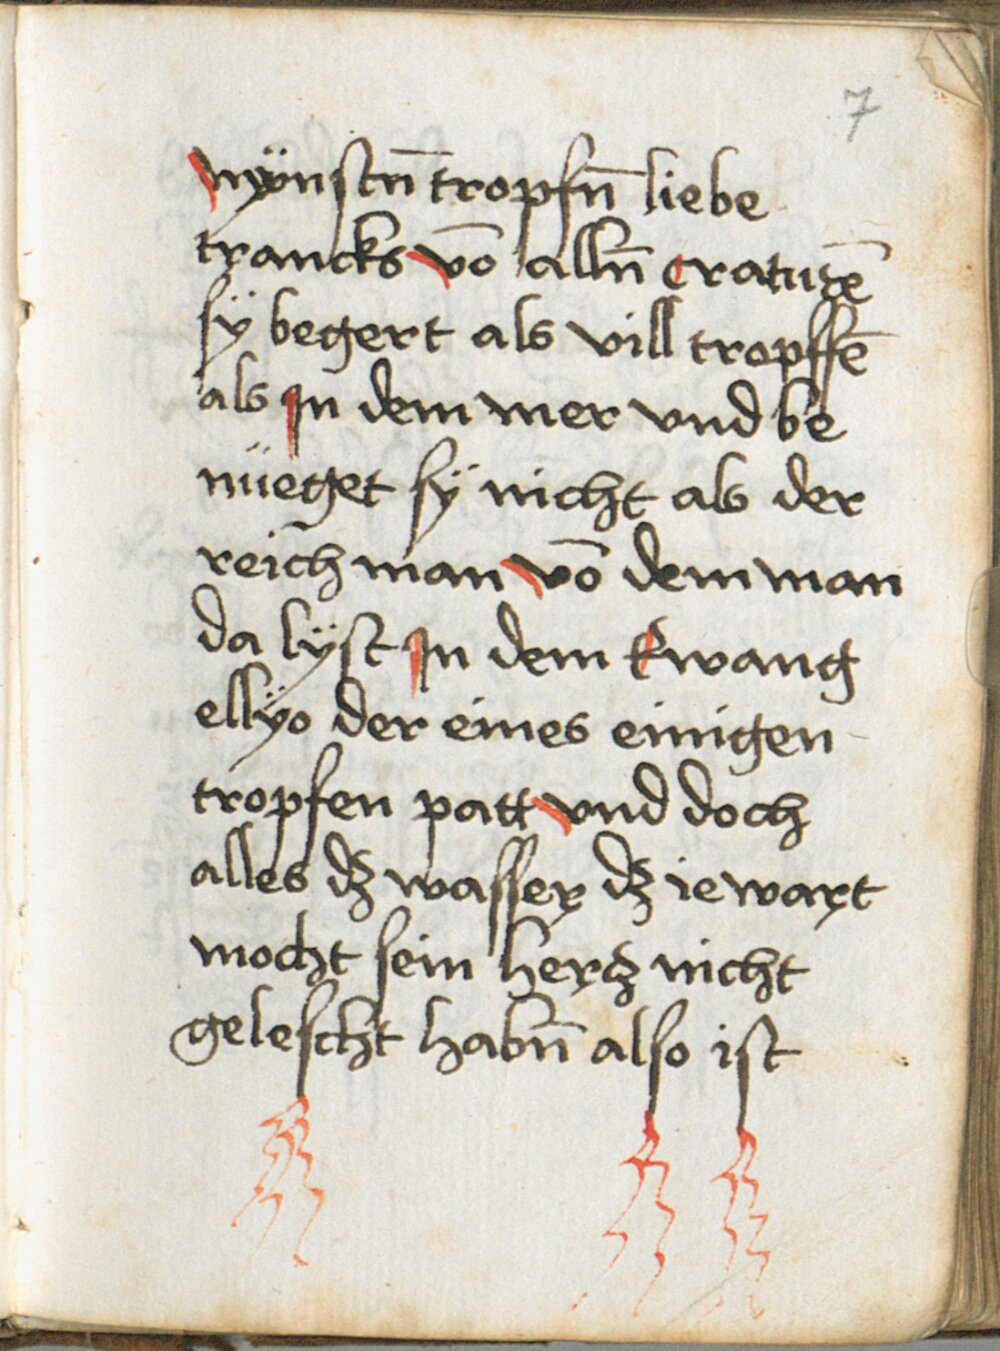 7
mÿnstn̄ tropfn̄ liebe
trancks vō alln̄ Craturē
sÿ begert als vill tropffē
als In dem mer vnd be
nüeget sÿ nicht als der
reich man vō dem man
da lÿst In dem Ewang
ellÿo der eines einigen
tropfen patt vnd doch
alles dꝫ wasser dꝫ ie wart
mocht sein hercz nicht
gelescht habn̄ also ist